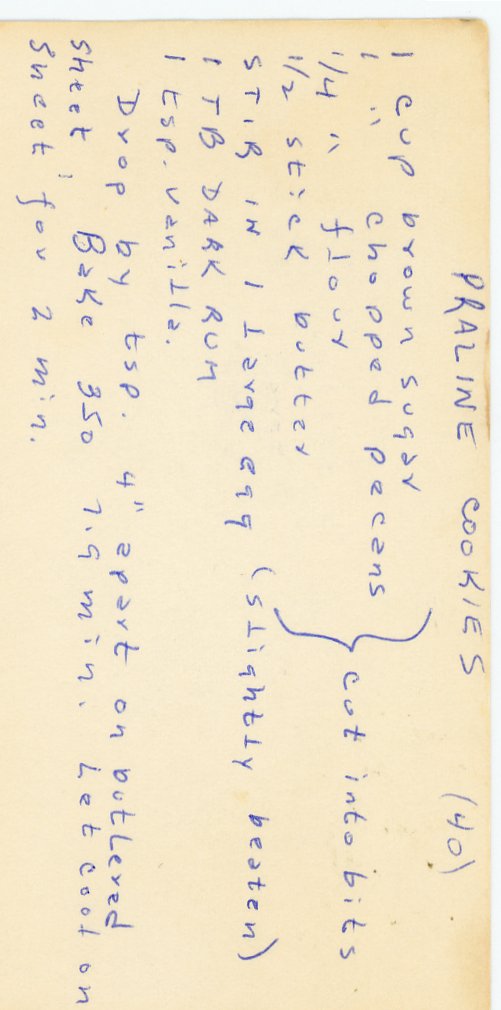 PRALINE COOKIES (40)
1 cup brown sugar
1 " chopped pecans
1/4 " flour
1/2 stick butter
} cut into bits
STIR IN 1 large egg (slightly beaten)
1 TB DARK RUM
1 tsp. vanilla.
Drop by tsp. 4" apart on buttered
sheet. Bake 350 7-9 min. Let cool on
sheet for 2 min.